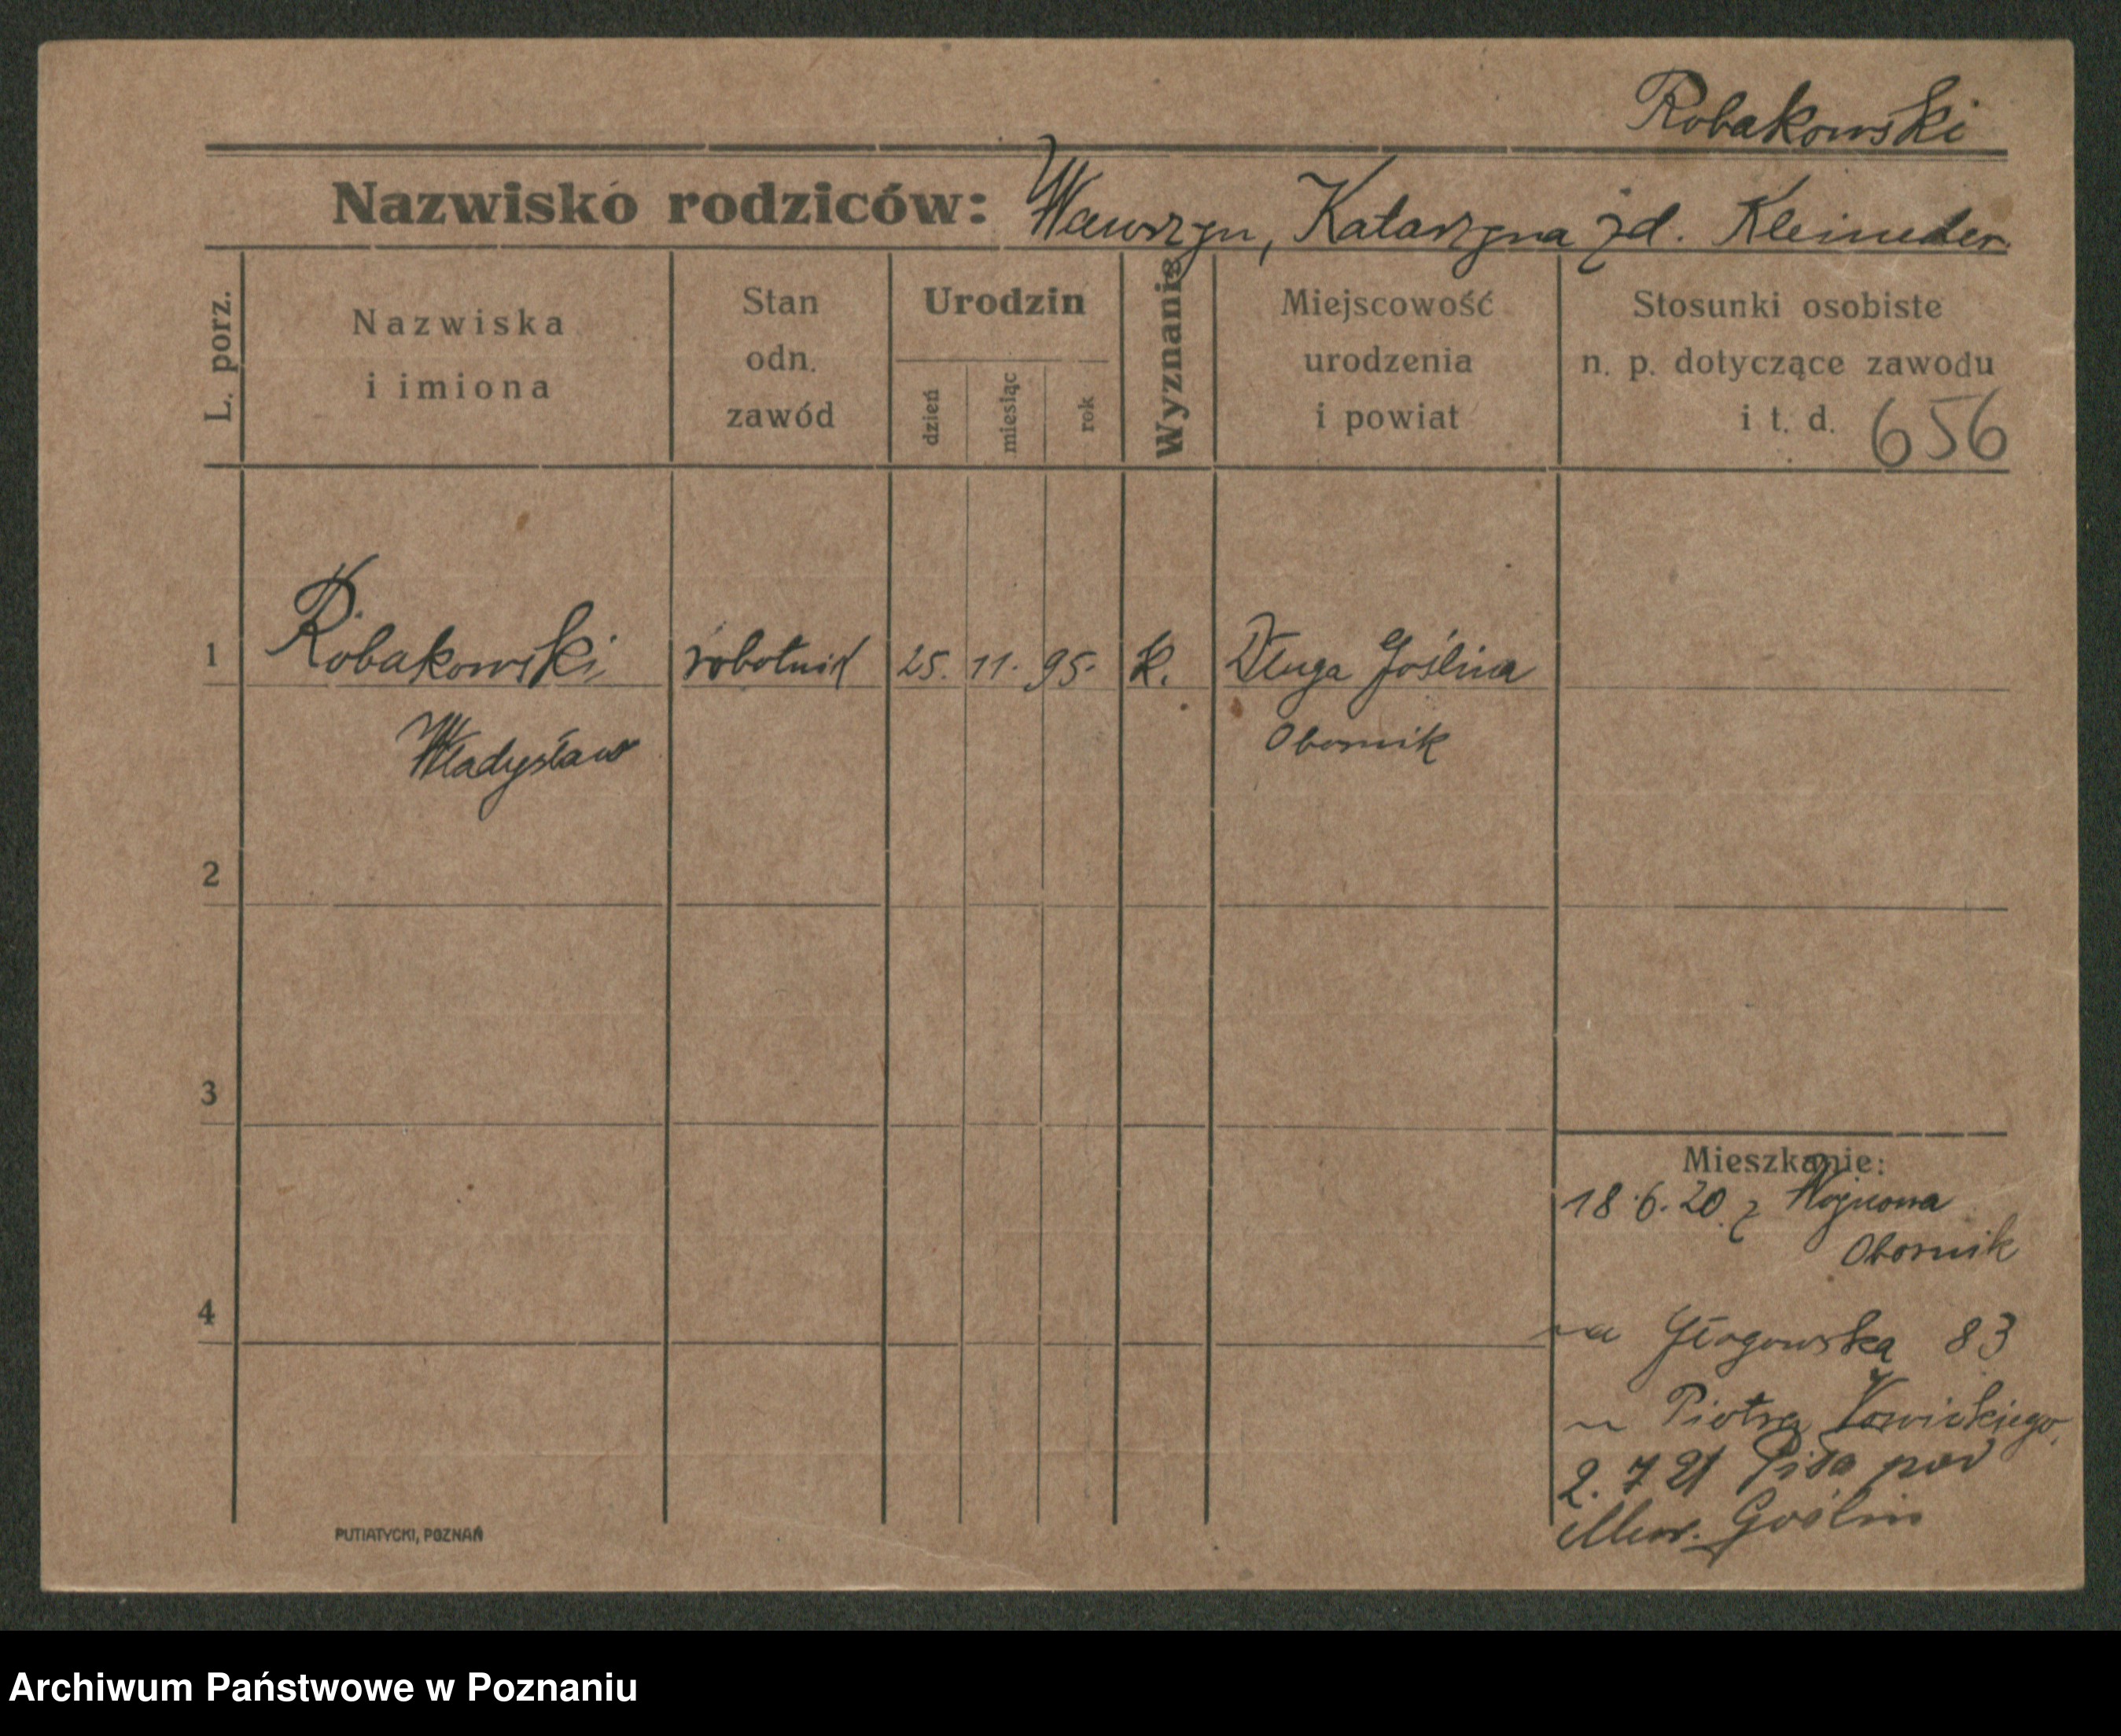 Robakowski
Nazwisko rodziców: Wawrzyn, Katarzyna zd. Kleineder
L. porz.
Nazwiska
i imiona
Stan
odn.
zawód
Urodzin
dzień
miesiąc
rok
Wyznanie
Miejscowość
urodzenia
i powiat
Stosunki osobiste
n. p. dotyczące zawodu
i t. d. 656
1 Robakowski, robotnik 25. 11. 95. k. Długa Goślina
Władysław Obornik
2
3
4
Mieszkanie:
18.6.20. z
Obornik
na Głogowska 83
Piotra
2. 7 21 Piła pod
Mur. Goślin
PUTIATYCKI, POZNAŃ
Archiwum Państwowe w Poznaniu